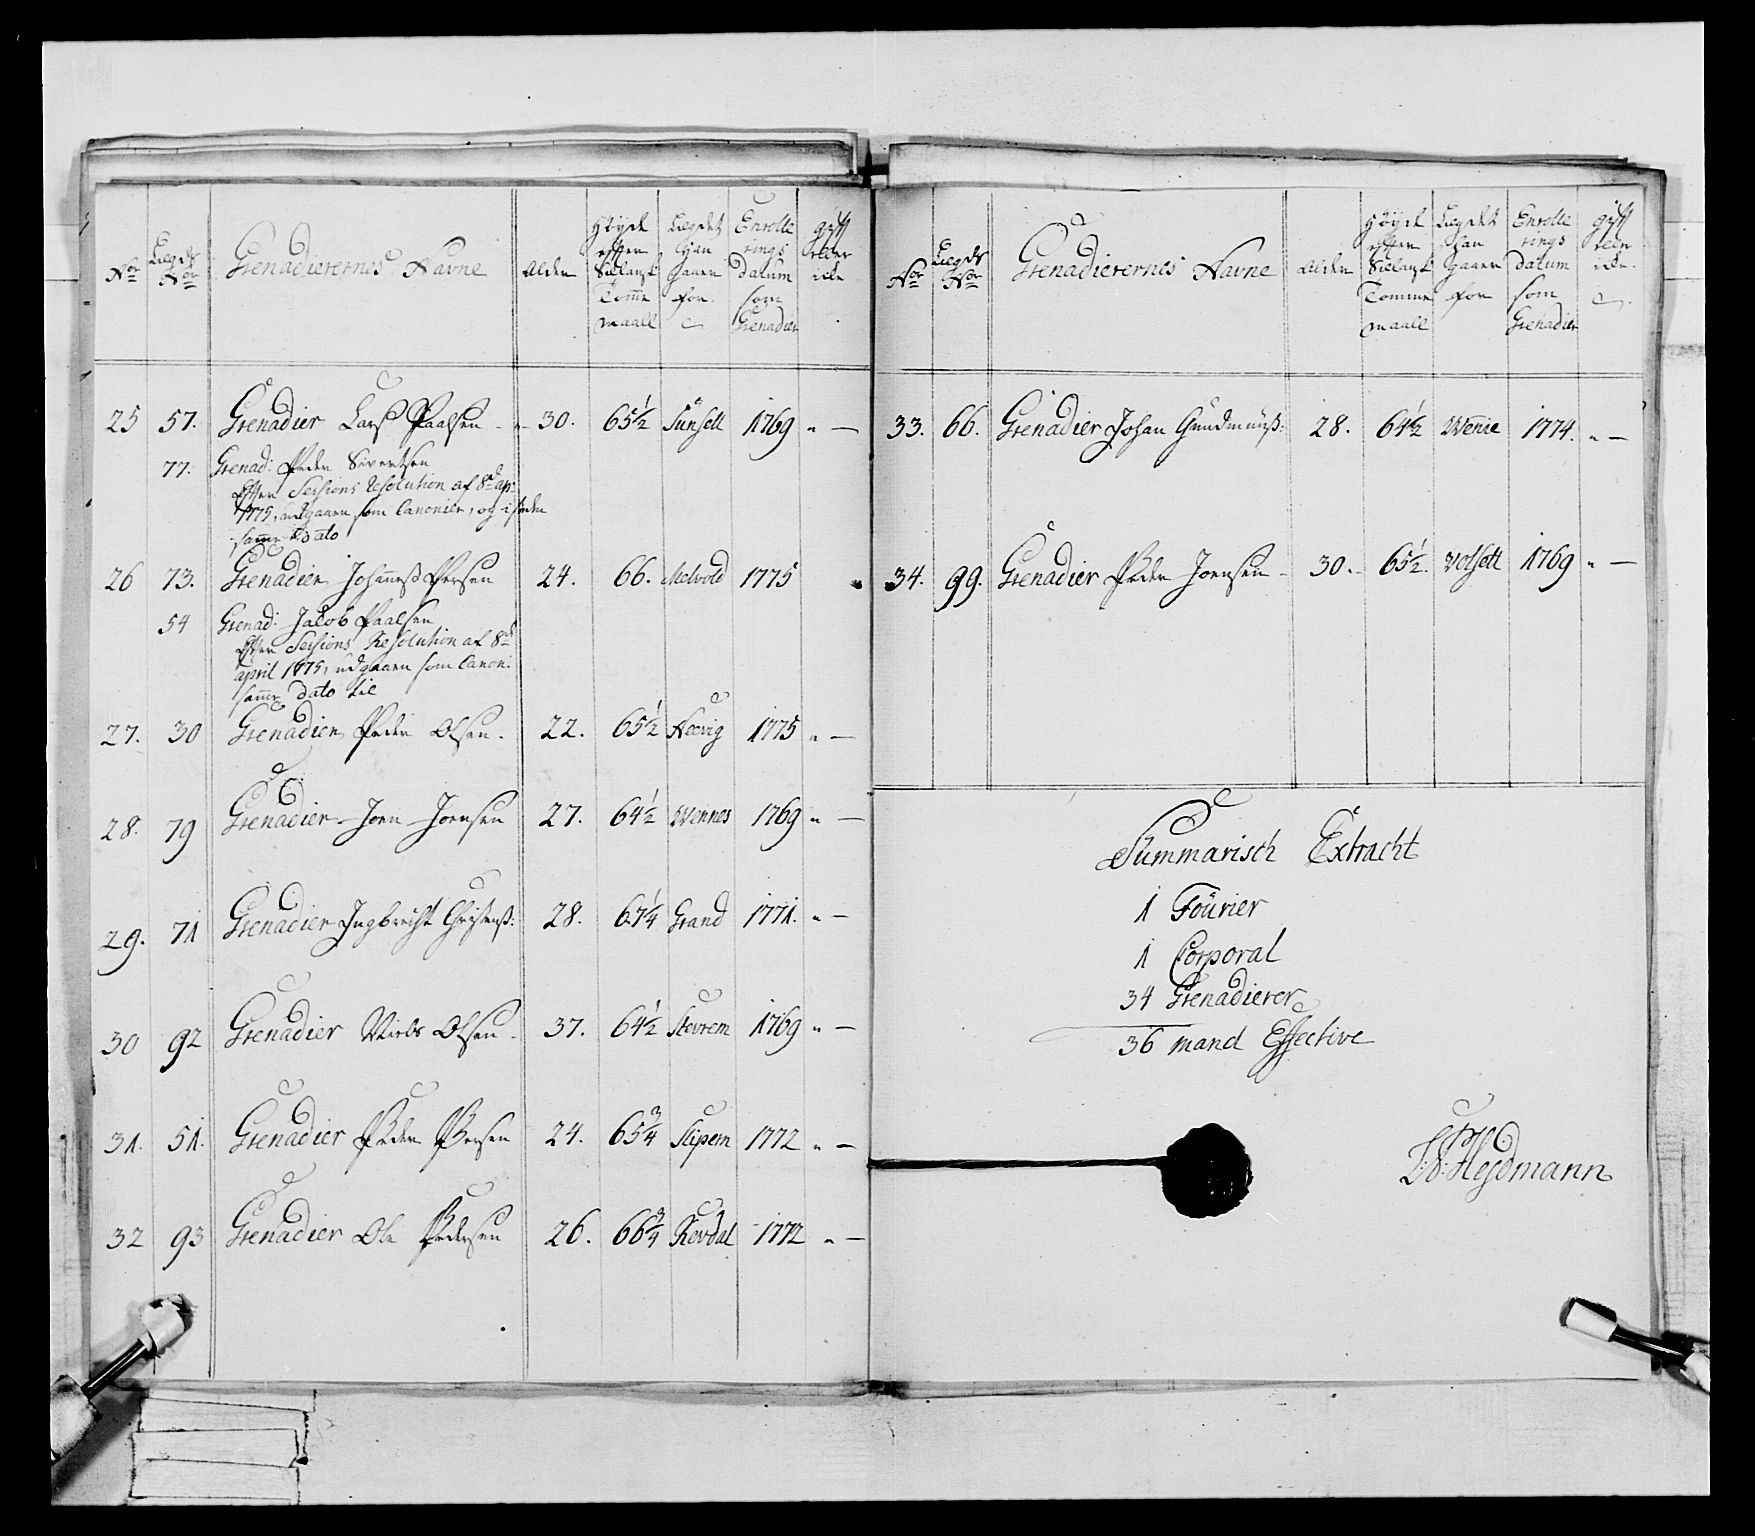 No͞r Lægds No͞r Grenadierernes Navne Alder Høyde efter Sielandsk Tomme maall Lægdet Han gaaer for Enrollerings datum som Grenadier gift eller icke
25 57. Grenadier Lars Paalsen 30. 65½ Sunsett 1769 " —
77. Grenad: Peder Sivertsen
Efter Sessions Resolution af 8de ap:
1775, udgaaen som Canonier, og i steden
samme Dato
26 73. Grenadier Johannes Persen 24. 66. Melvold 1775 "
54 Grenad: Jacob Paalsen
Efter Sessions Resolution af 8de
april 1775, udgaaen som Canoni:
samme Dato til
27. 30 Grenadier Peder Olsen. 22. 65½ 1775 " —
28. 79 Grenadier Joen Joensen 27. 64½ Wennes 1769 " —
29. 71 Grenadier Ingbrecht Christens: 28. 67¼ Grand 1771. " —
30 92 Grenadier Niels Olsen 37. 64½ 1769 " —
31. 51. Grenadier Peder Persen 24. 65¾ 1772 " —
32 93 Grenadier Ole Pedersen 26. 66¾ 1772 " —
No͞r Lægds No͞r Grenadierernes Navne Alder Høyde efter Sielandsk Tomme maall Lægdet Han gaaer for Enrollerings datum som Grenadier gift eller icke
33. 66. Grenadier Johan Gundmunds: 28. 64½ 1774. " —
34. 99. Grenadier Peder Joensen 30. 65½. Volsett 1769 " —
Summarisch Extracht
1 Fourier
1 Corporal
34 Grenadierer
36 mand Effective
Heydmann